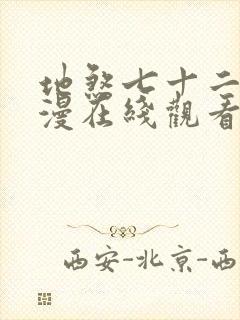 地煞七十二
漫在线觀看
西安-北京-西